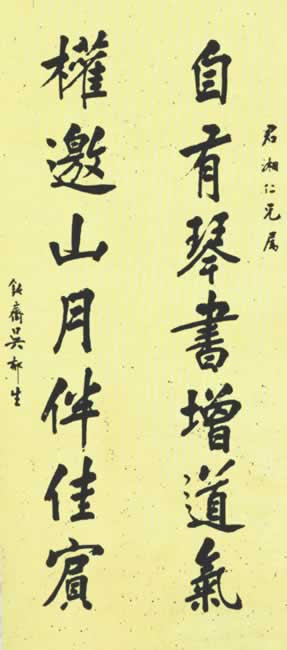 君湘仁兄属
自有琴書增道氣
權邀山月伴佳賓
鈍齋吳郁生